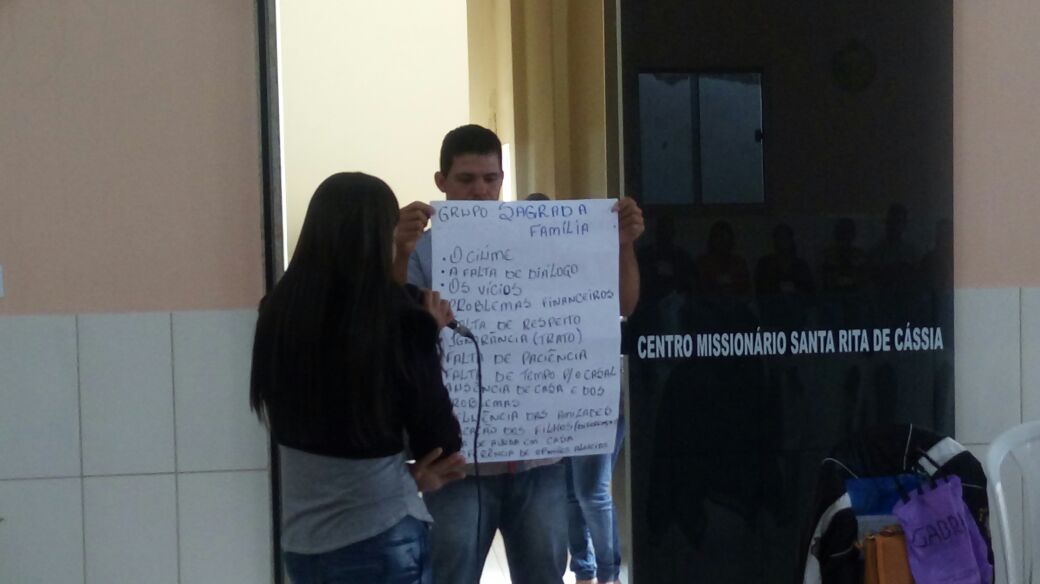 GRUPO SAGRADA
FAMÍLIA
• O CIÚME
• A FALTA DE DIÁLOGO
• OS VÍCIOS
PROBLEMAS FINANCEIROS
FALTA DE RESPEITO
IGNORÂNCIA (TRATO)
FALTA DE PACIÊNCIA
FALTA DE TEMPO P/O CASAL
AUSÊNCIA DE CASA E DOS
PROBLEMAS
DAS AMIZADES
DOS FILHOS
DE AJUDA EM CASA
DE OPINIÕES
CENTRO MISSIONÁRIO SANTA RITA DE CÁSSIA
GABRI